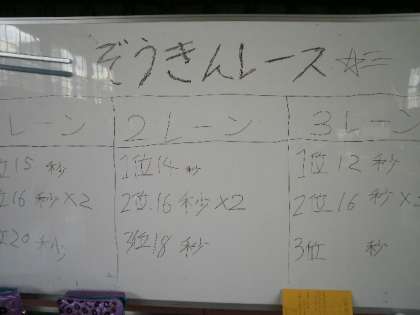 ぞうきんレース ☆三
レーン
位15秒
位16秒×2
位20秒
2レーン
1位14秒
2位16秒×2
3位18秒
3レーン
1位12秒
2位16秒×2
3位 秒